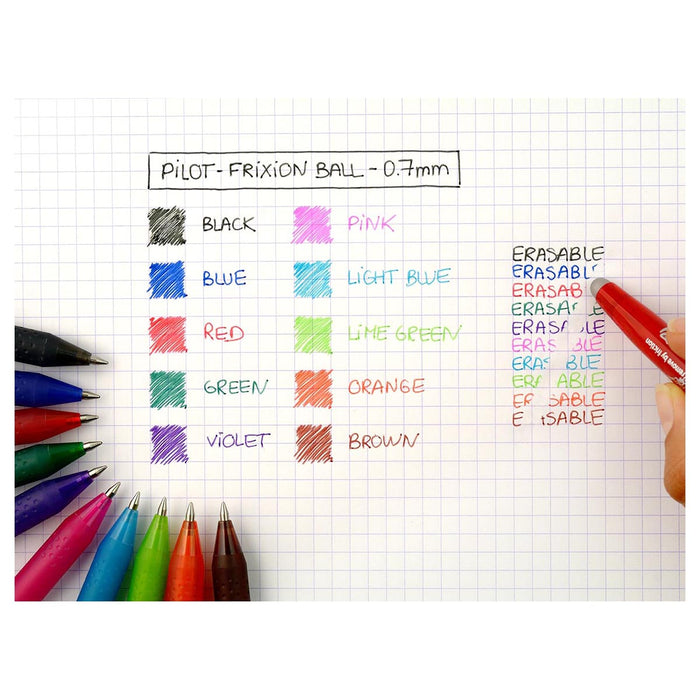 PiLOT - FRiXiON BALL - 0.7mm
BLACK
BLUE
RED
GREEN
ViOLET
PiNK
LiGHT BLUE
LiME GREEN
ORANGE
BROWN
ERASABLE
ERASABL
ERASAB
ERASA
ERASABLE
ERAS BLE
ERAS BLE
ERA ABLE
ER SABLE
E iSABLE
remove by friction